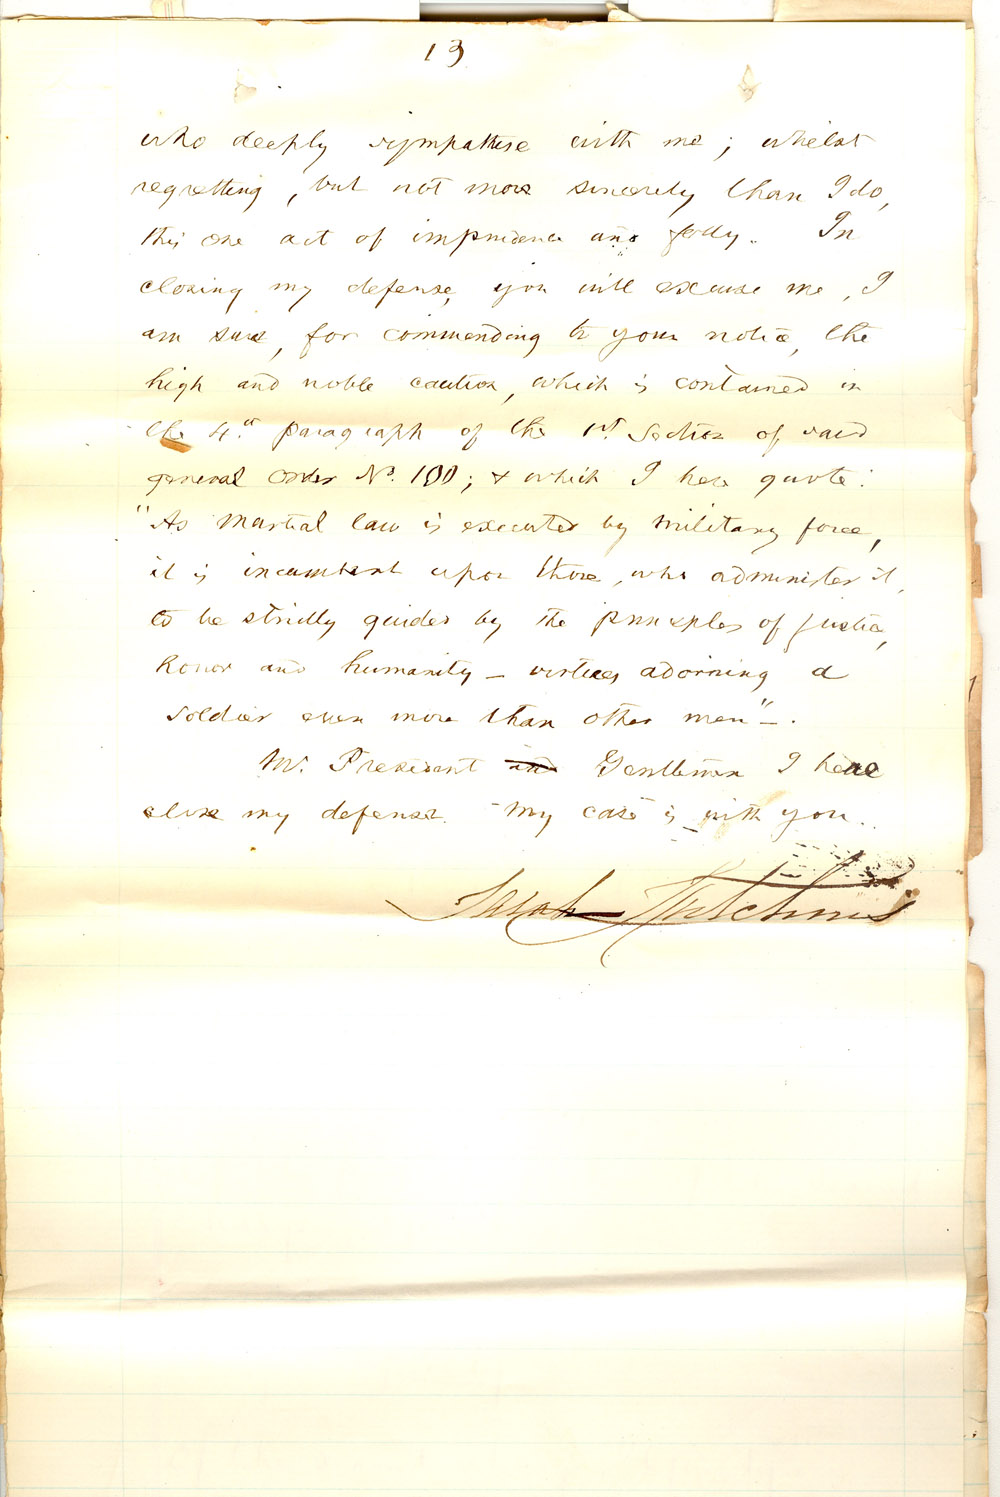 13
who deeply sympathise with me; whilst
regretting, but not more sincerely than I do,
this one act of imprudence and folly. In
closing my defense, you will excuse me, I
am sure, for commending to your notice, the
high and noble caution, which is contained in
the 4th paragraph of the 1st Section of said
general order No. 100; & which I here quote:
"As Martial law is executed by military force,
it is incumbent upon those, who administer it,
to be strictly guided by the principles of justice,
honor and humanity – virtues adorning a
soldier even more than other men" – .
Mr. President and Gentlemen I here
close my defense. My case is with you.
Sarah Hutchins